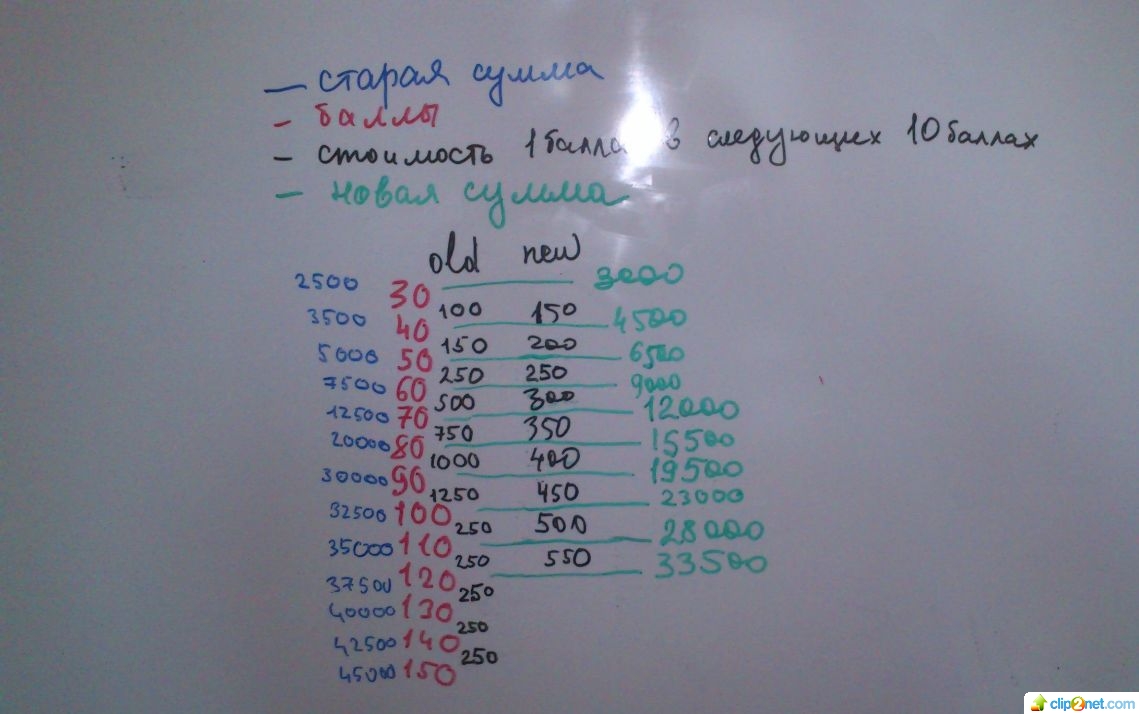 — старая сумма
- баллы
- стоимость 1 балла в следующих 10 баллах
- новая сумма
old new
2500 30 3000
100 150
3500 40 4500
150 200
5000 50 6500
250 250
7500 60 9000
500 300
12500 70 12000
750 350
20000 80 15500
1000 400
30000 90 19500
1250 450
32500 100 23000
250 500
35000 110 28000
250 550
37500 120 33500
250
40000 130
250
42500 140
250
45000 150
clip2net.com